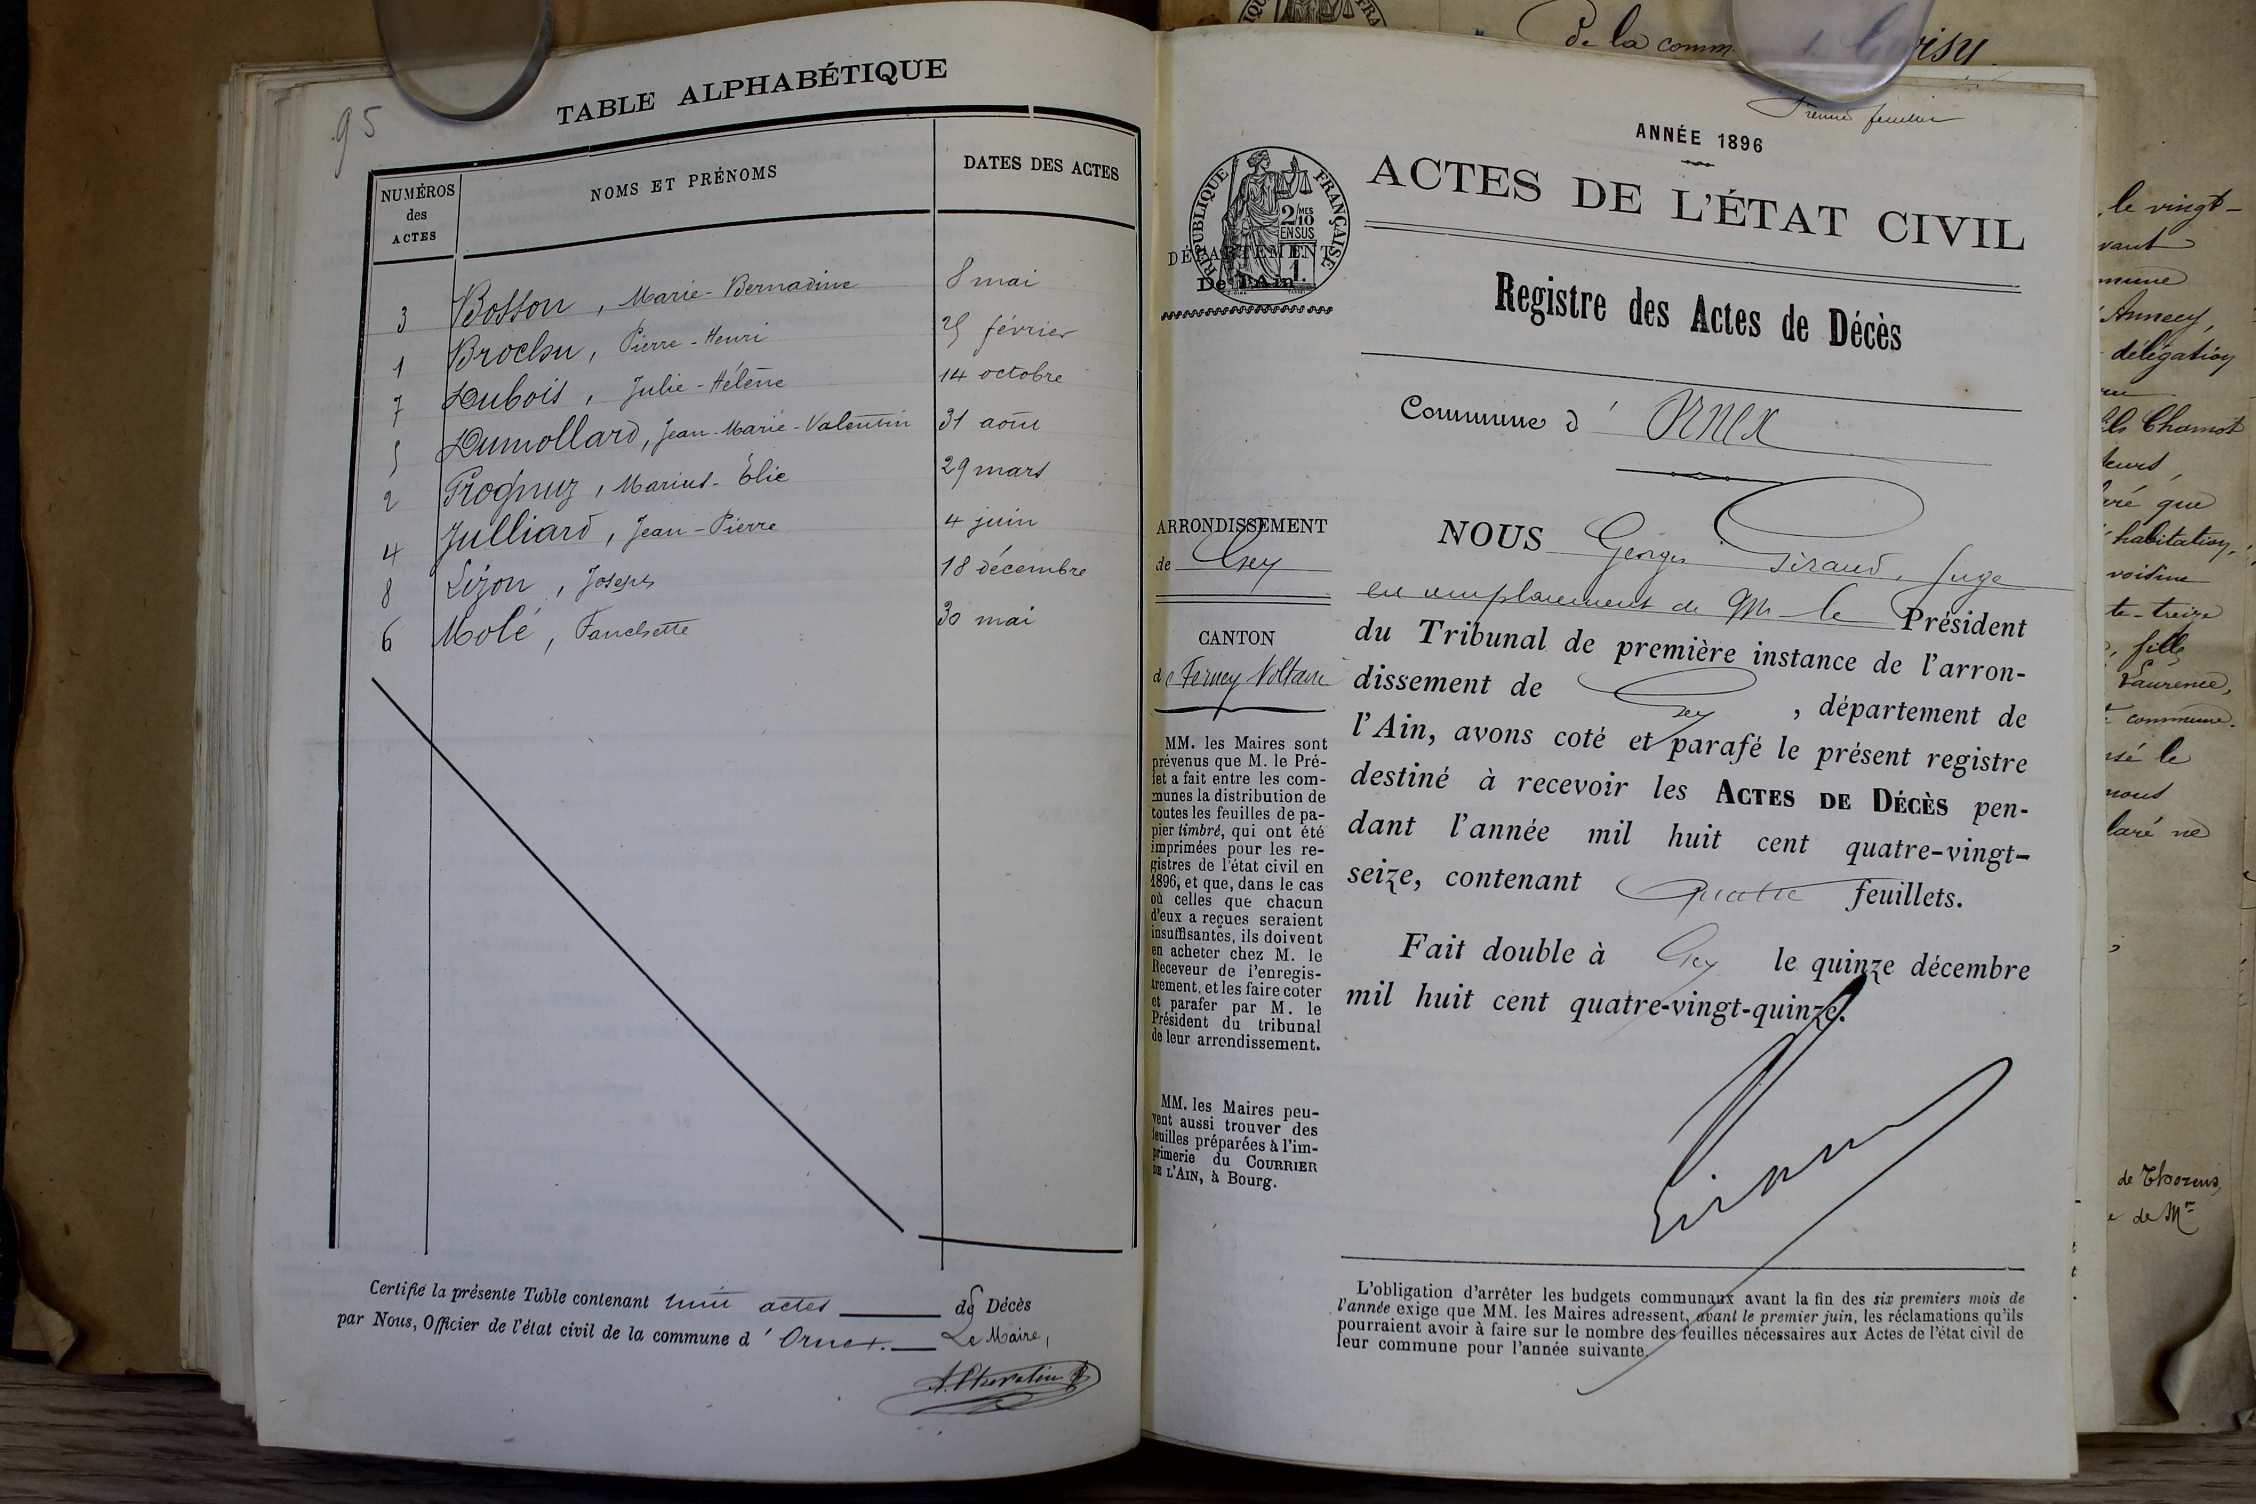 95
TABLE ALPHABÉTIQUE
NUMÉROS des ACTES
NOMS ET PRÉNOMS
DATES DES ACTES
3 Bosson, Marie-Bernadine 8 mai
1 Brochu, Pierre-Henri 25 février
7 Dubois, Julie-Hélène 14 octobre
5 Dumollard, Jean-Marie-Valentin 31 août
2 Marius-Élie 29 mars
4 Julliard, Jean-Pierre 4 juin
8 Lizon, Joseph 18 décembre
6 Molé, Fanchette 30 mai
Certifié la présente Table contenant huit actes de Décès
par Nous, Officier de l'état civil de la commune d'Ornex.
Le Maire,
de la comm
feuillet
ANNÉE 1896
ACTES DE L'ÉTAT CIVIL
RÉPUBLIQUE FRANÇAISE
2/10 MES
EN SUS
1.
DÉPARTEMENT
De l'Ain
Registre des Actes de Décès
Commune d'Ornex
ARRONDISSEMENT
de Gex
CANTON
de Ferney Voltaire
MM. les Maires sont
prévenus que M. le Pré-
fet a fait entre les com-
munes la distribution de
toutes les feuilles de pa-
pier timbré, qui ont été
imprimées pour les re-
gistres de l'état civil en
1896, et que, dans le cas
où celles que chacun
d'eux a reçues seraient
insuffisantes, ils doivent
en acheter chez M. le
Receveur de l'enregis-
trement, et les faire coter
et parafer par M. le
Président du tribunal
de leur arrondissement.
MM. les Maires peu-
vent aussi trouver des
feuilles préparées à l'im-
primerie du COURRIER
DE L'AIN, à Bourg.
NOUS Georges Giraud, Juge
en remplacement de Mr le Président
du Tribunal de première instance de l'arron-
dissement de Gex, département de
l'Ain, avons coté et parafé le présent registre
destiné à recevoir les ACTES DE DÉCÈS pen-
dant l'année mil huit cent quatre-vingt-
seize, contenant quatre feuillets.
Fait double à Gex le quinze décembre
mil huit cent quatre-vingt-quinze.
Giraud
L'obligation d'arrêter les budgets communaux avant la fin des six premiers mois de
l'année exige que MM. les Maires adressent, avant le premier juin, les réclamations qu'ils
pourraient avoir à faire sur le nombre des feuilles nécessaires aux Actes de l'état civil de
leur commune pour l'année suivante.
le vingt-
vant
mune
Annecy,
délégation
Chamot
teurs,
aré que
habitation,
voisine
te-treize
fille
Laurence,
commune.
nsé le
nous
laré ne
de Thorens,
de Mr